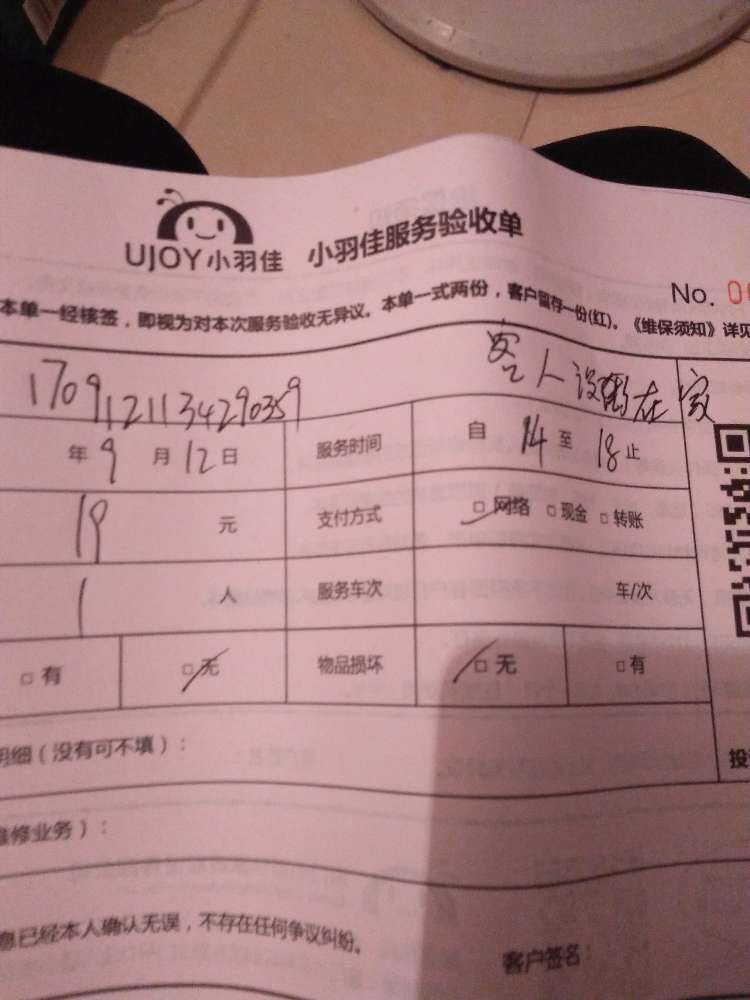 UJOY小羽佳 小羽佳服务验收单
No. 0
本单一经核签，即视为对本次服务验收无异议。本单一式两份，客户留存一份(红)。《维保须知》详见
1709121134290359 客人没有在家
年 9 月 12 日 服务时间 自 14 至 18 止
19 元 支付方式 □ 网络 □ 现金 □ 转账
1 人 服务车次 车/次
□ 有 □ 无 物品损坏 □ 无 □ 有
明细（没有可不填）：
投
维修业务）：
息已经本人确认无误，不存在任何争议纠纷。
客户签名：